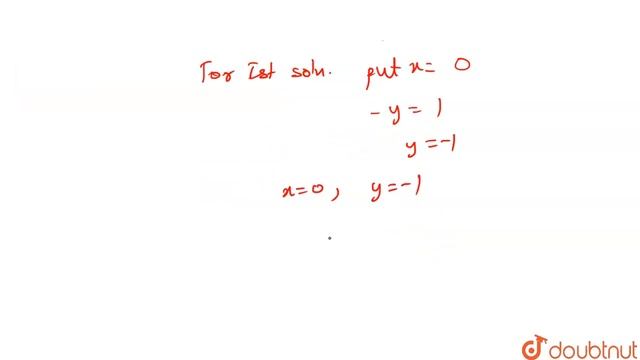 For Ist soln. put x = 0
- y = 1
y = -1
x = 0, y = -1
doubtnut